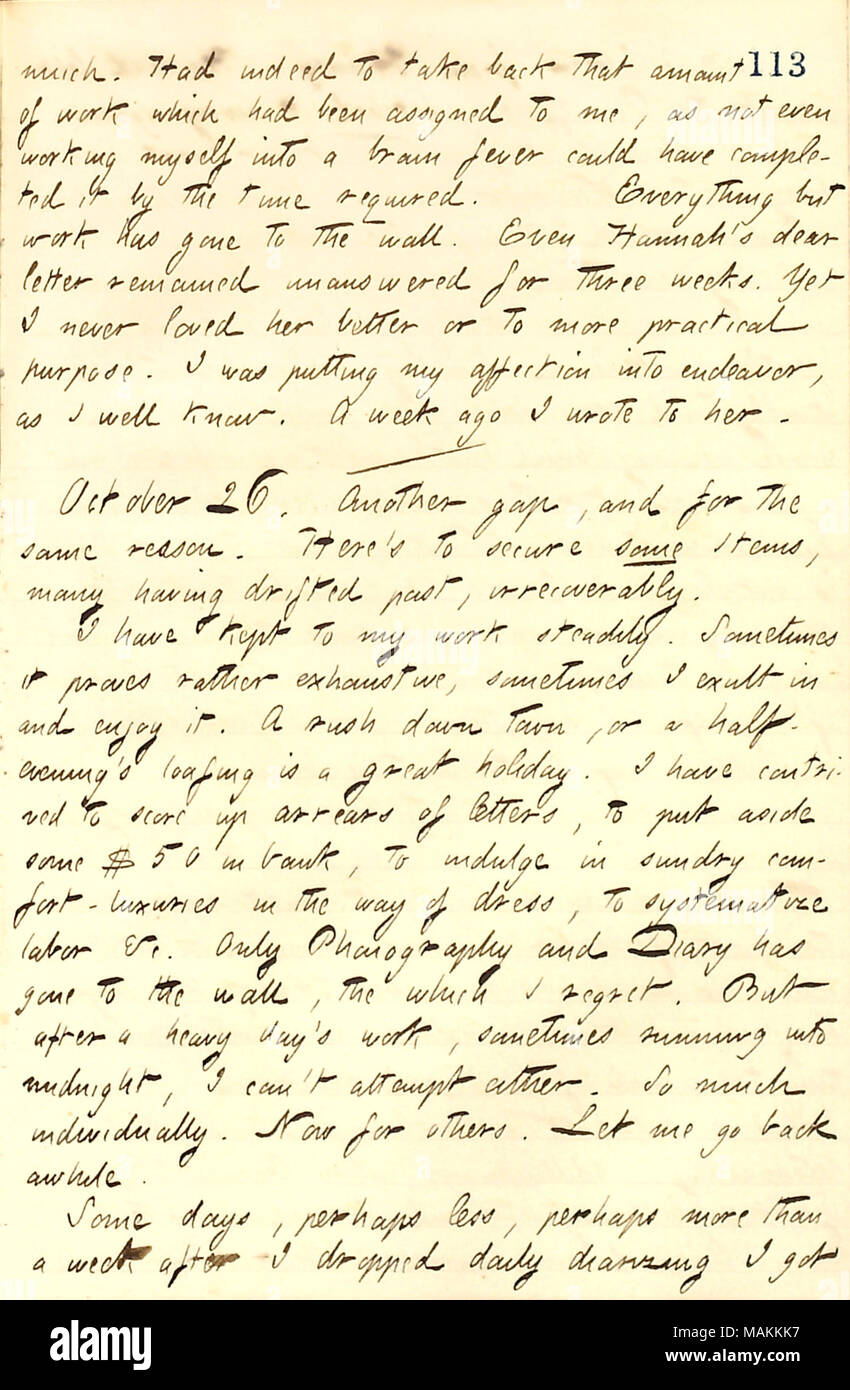 much. Had indeed to take back that amount 113
of work which had been assigned to me, as not even
working myself into a brain fever could have comple-
ted it by the time required. Everything but
work has gone to the wall. Even Hannah's dear
letter remained unanswered for three weeks. Yet
I never loved her better or to more practical
purpose. I was putting my affection into endeavor,
as I well know. A week ago I wrote to her.
October 26. Another gap, and for the
same reason. Here's to secure some items,
many having drifted past, irrecoverably.
I have kept to my work steadily. Sometimes
it proves rather exhaustive, sometimes I exult in
and enjoy it. A rush down town, or a half-
evening's loafing is a great holiday. I have contri-
ved to score up arrears of letters, to put aside
some $50 in bank, to indulge in sundry com-
fort-luxuries in the way of dress, to systematize
labor &c. Only Phonography and Diary has
gone to the wall, the which I regret. But
after a heavy day's work, sometimes running into
midnight, I can't attempt either. So much
individually. Now for others. Let me go back
awhile.
Some days, perhaps less, perhaps more than
a week after I dropped daily diarizing I got
alamy
Image ID: MAKKK7
www.alamy.com